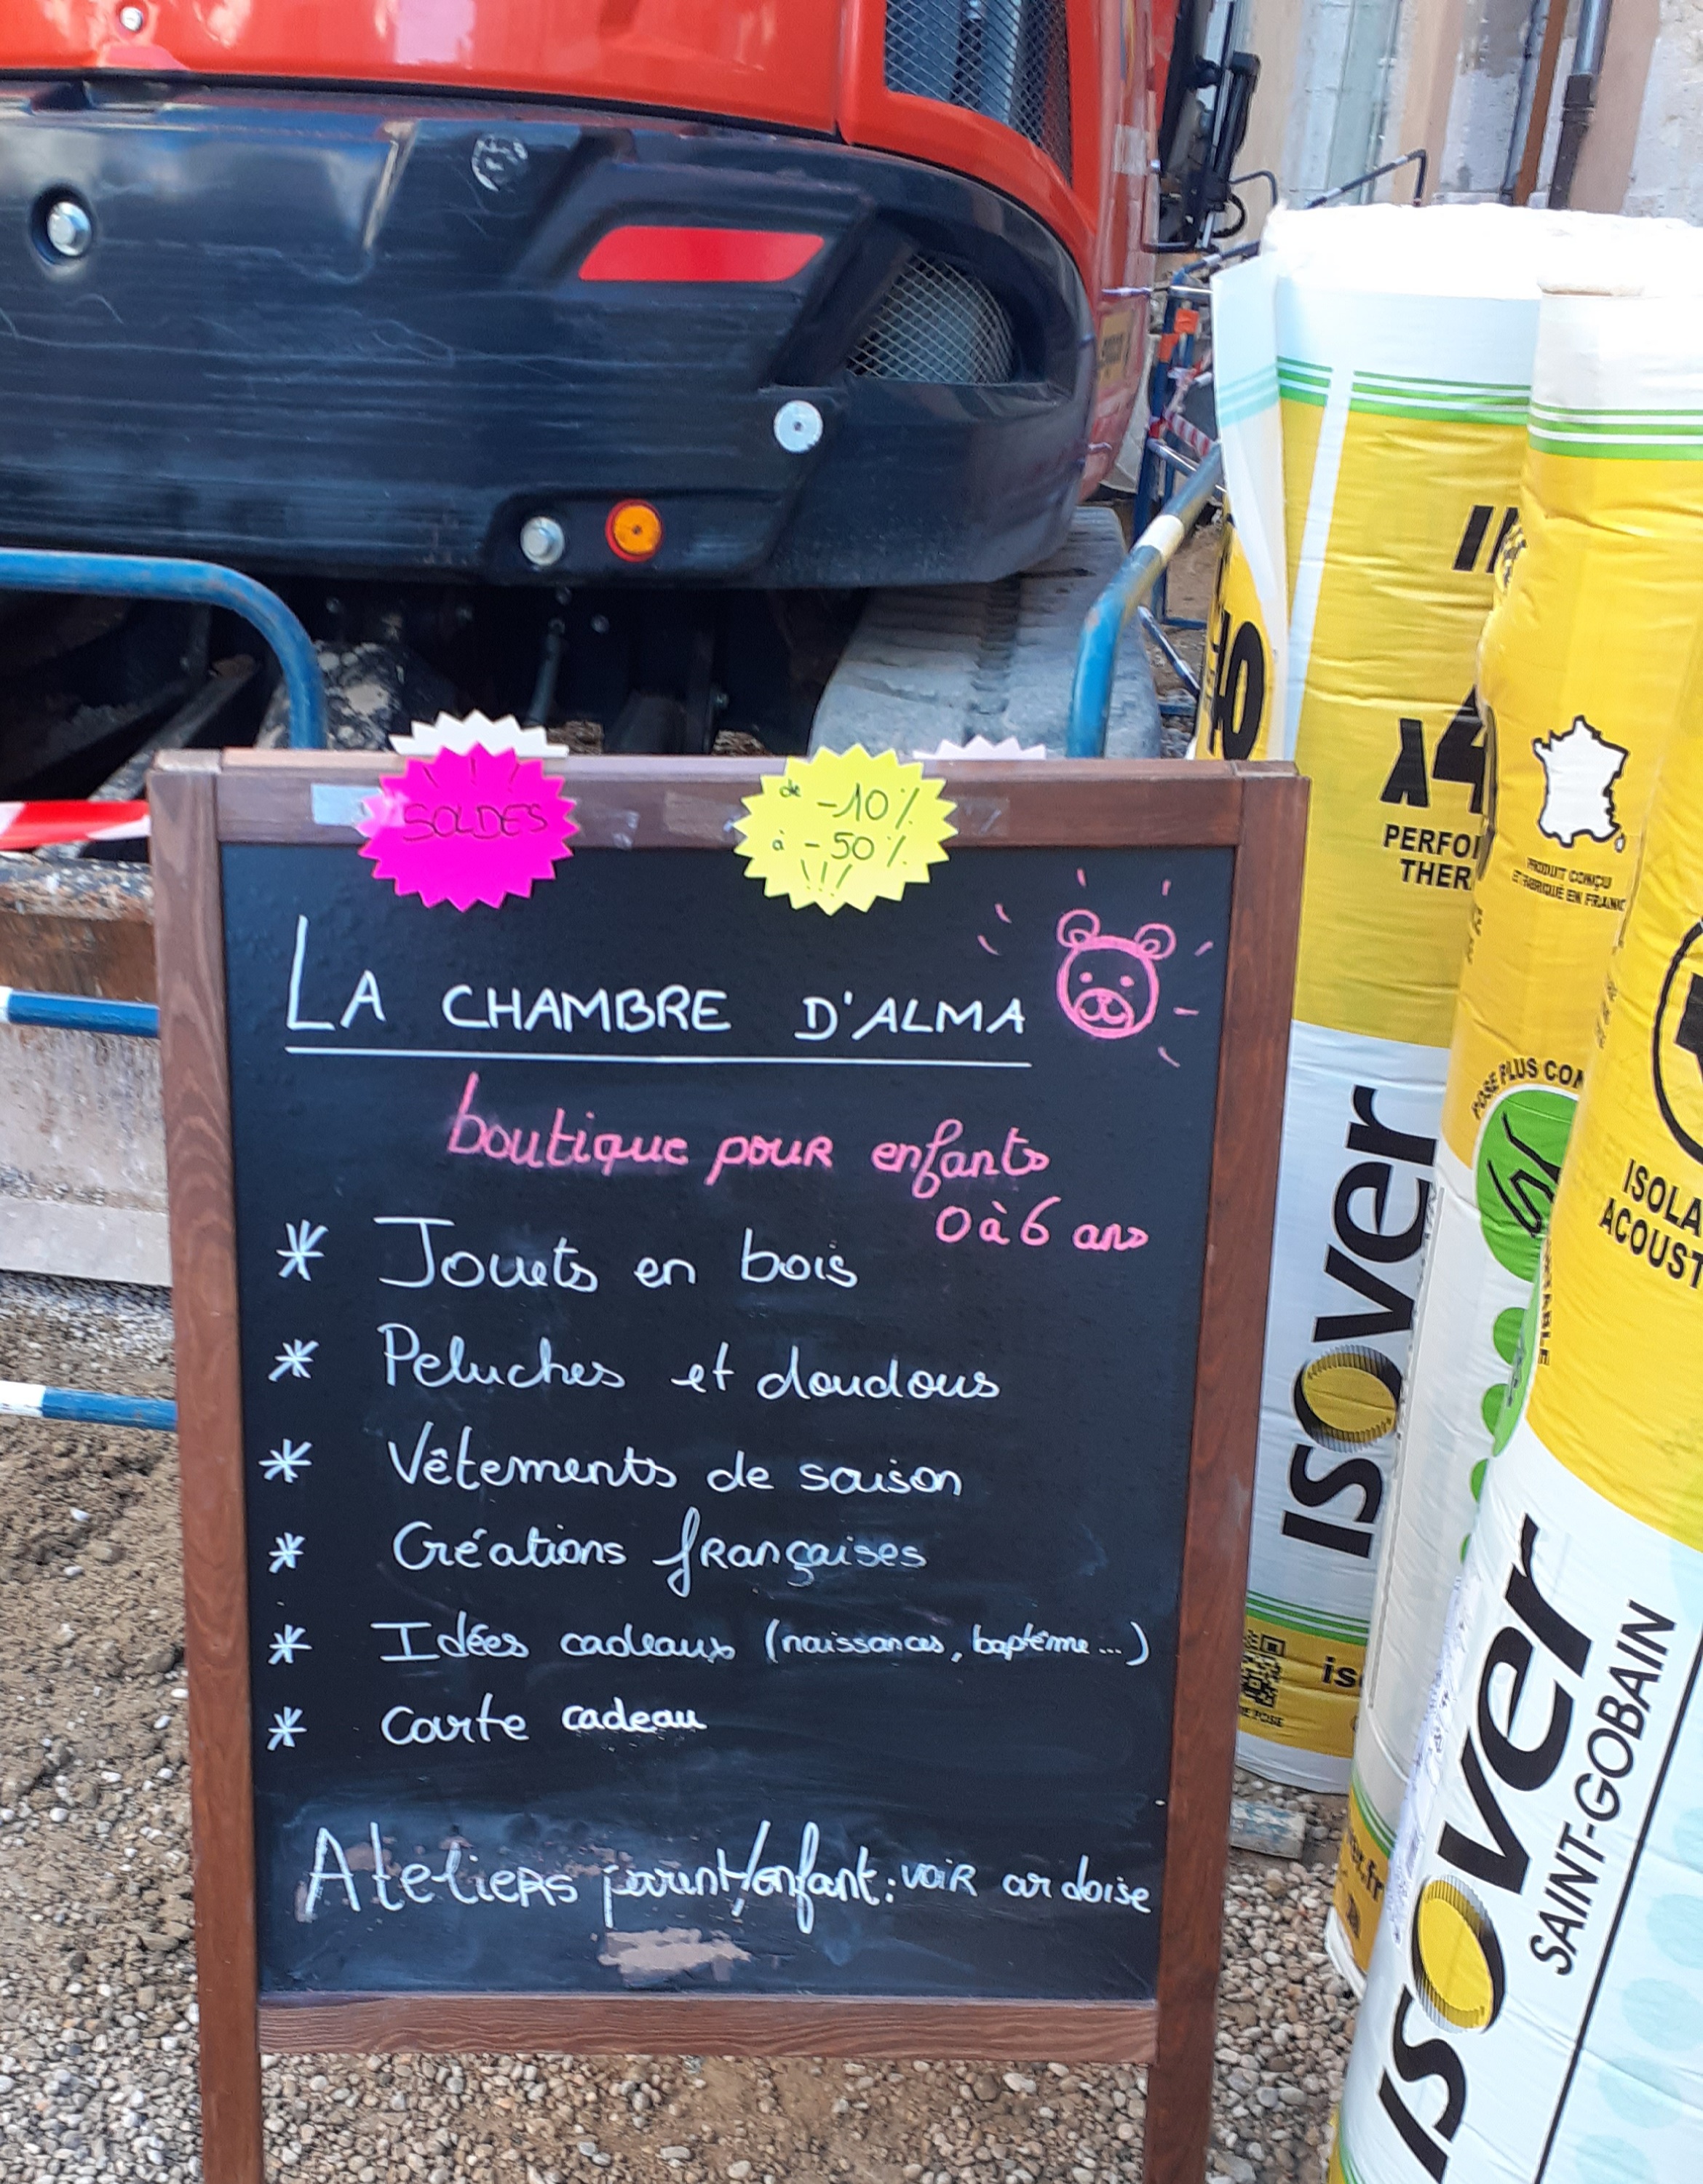 SOLDES
de -10%
à -50%
!!!
LA CHAMBRE D'ALMA
boutique pour enfants
0 à 6 ans
* Jouets en bois
* Peluches et doudous
* Vêtements de saison
* Créations françaises
* Idées cadeaux (naissances, baptême...)
* Carte cadeau
Ateliers parent/enfant: voir ardoise
40
λ4
PERFO
THER
isover
PRODUIT CONÇU
ET FABRIQUÉ EN FRANC
POSE PLUS CON
ISOLA
ACOUST
isover
SAINT-GOBAIN